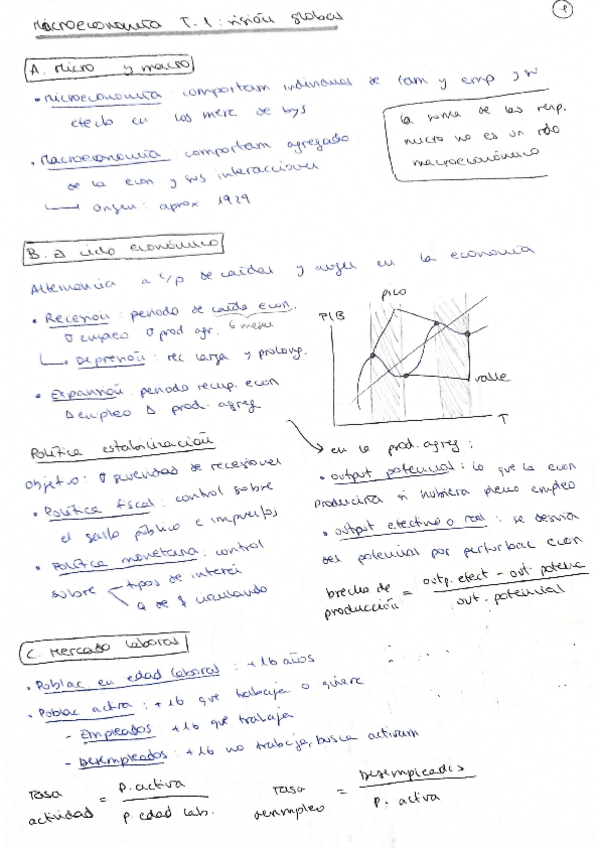 Macroeconomía T.1: visión global
1
A. Micro y macro
• Microeconomía: comportam individual de fam y emp y su
efecto en los merc de bys
la suma de las resp.
micro no es un rdo
macroeconómico
• Macroeconomía: comportam agregado
de la econ y sus interacciones
origen: aprox 1929
B. El ciclo económico
Alternancia a c/p de caídas y auges en la economía
• Recesión: periodo de caída econ.
∇ empleo ∇ prod agr. 6 meses
Depresión: rec. larga y prolong.
• Expansión: periodo recup. econ
Δ empleo Δ prod. agreg
PIB
pico
valle
T
Política estabilización
objetivo: ∇ gravedad de recesiones
• Política fiscal: control sobre
el gasto público e impuestos
• Política monetaria: control
sobre tipos de interés
q de $ circulando
en la prod. agreg:
• output potencial: lo que la econ
produciría si hubiera pleno empleo
• output efectivo o real: se desvía
del potencial por perturbac econ
brecha de producción = outp. efect - out. potenc / out. potencial
C. Mercado laboral
• Poblac en edad laboral: +16 años
• Poblac activa: +16 que trabaja o quiere
- Empleados: +16 que trabaja
- Desempleados: +16 no trabaja, busca activam
Tasa actividad = P. activa / P. edad lab.
Tasa desempleo = Desempleados / P. activa